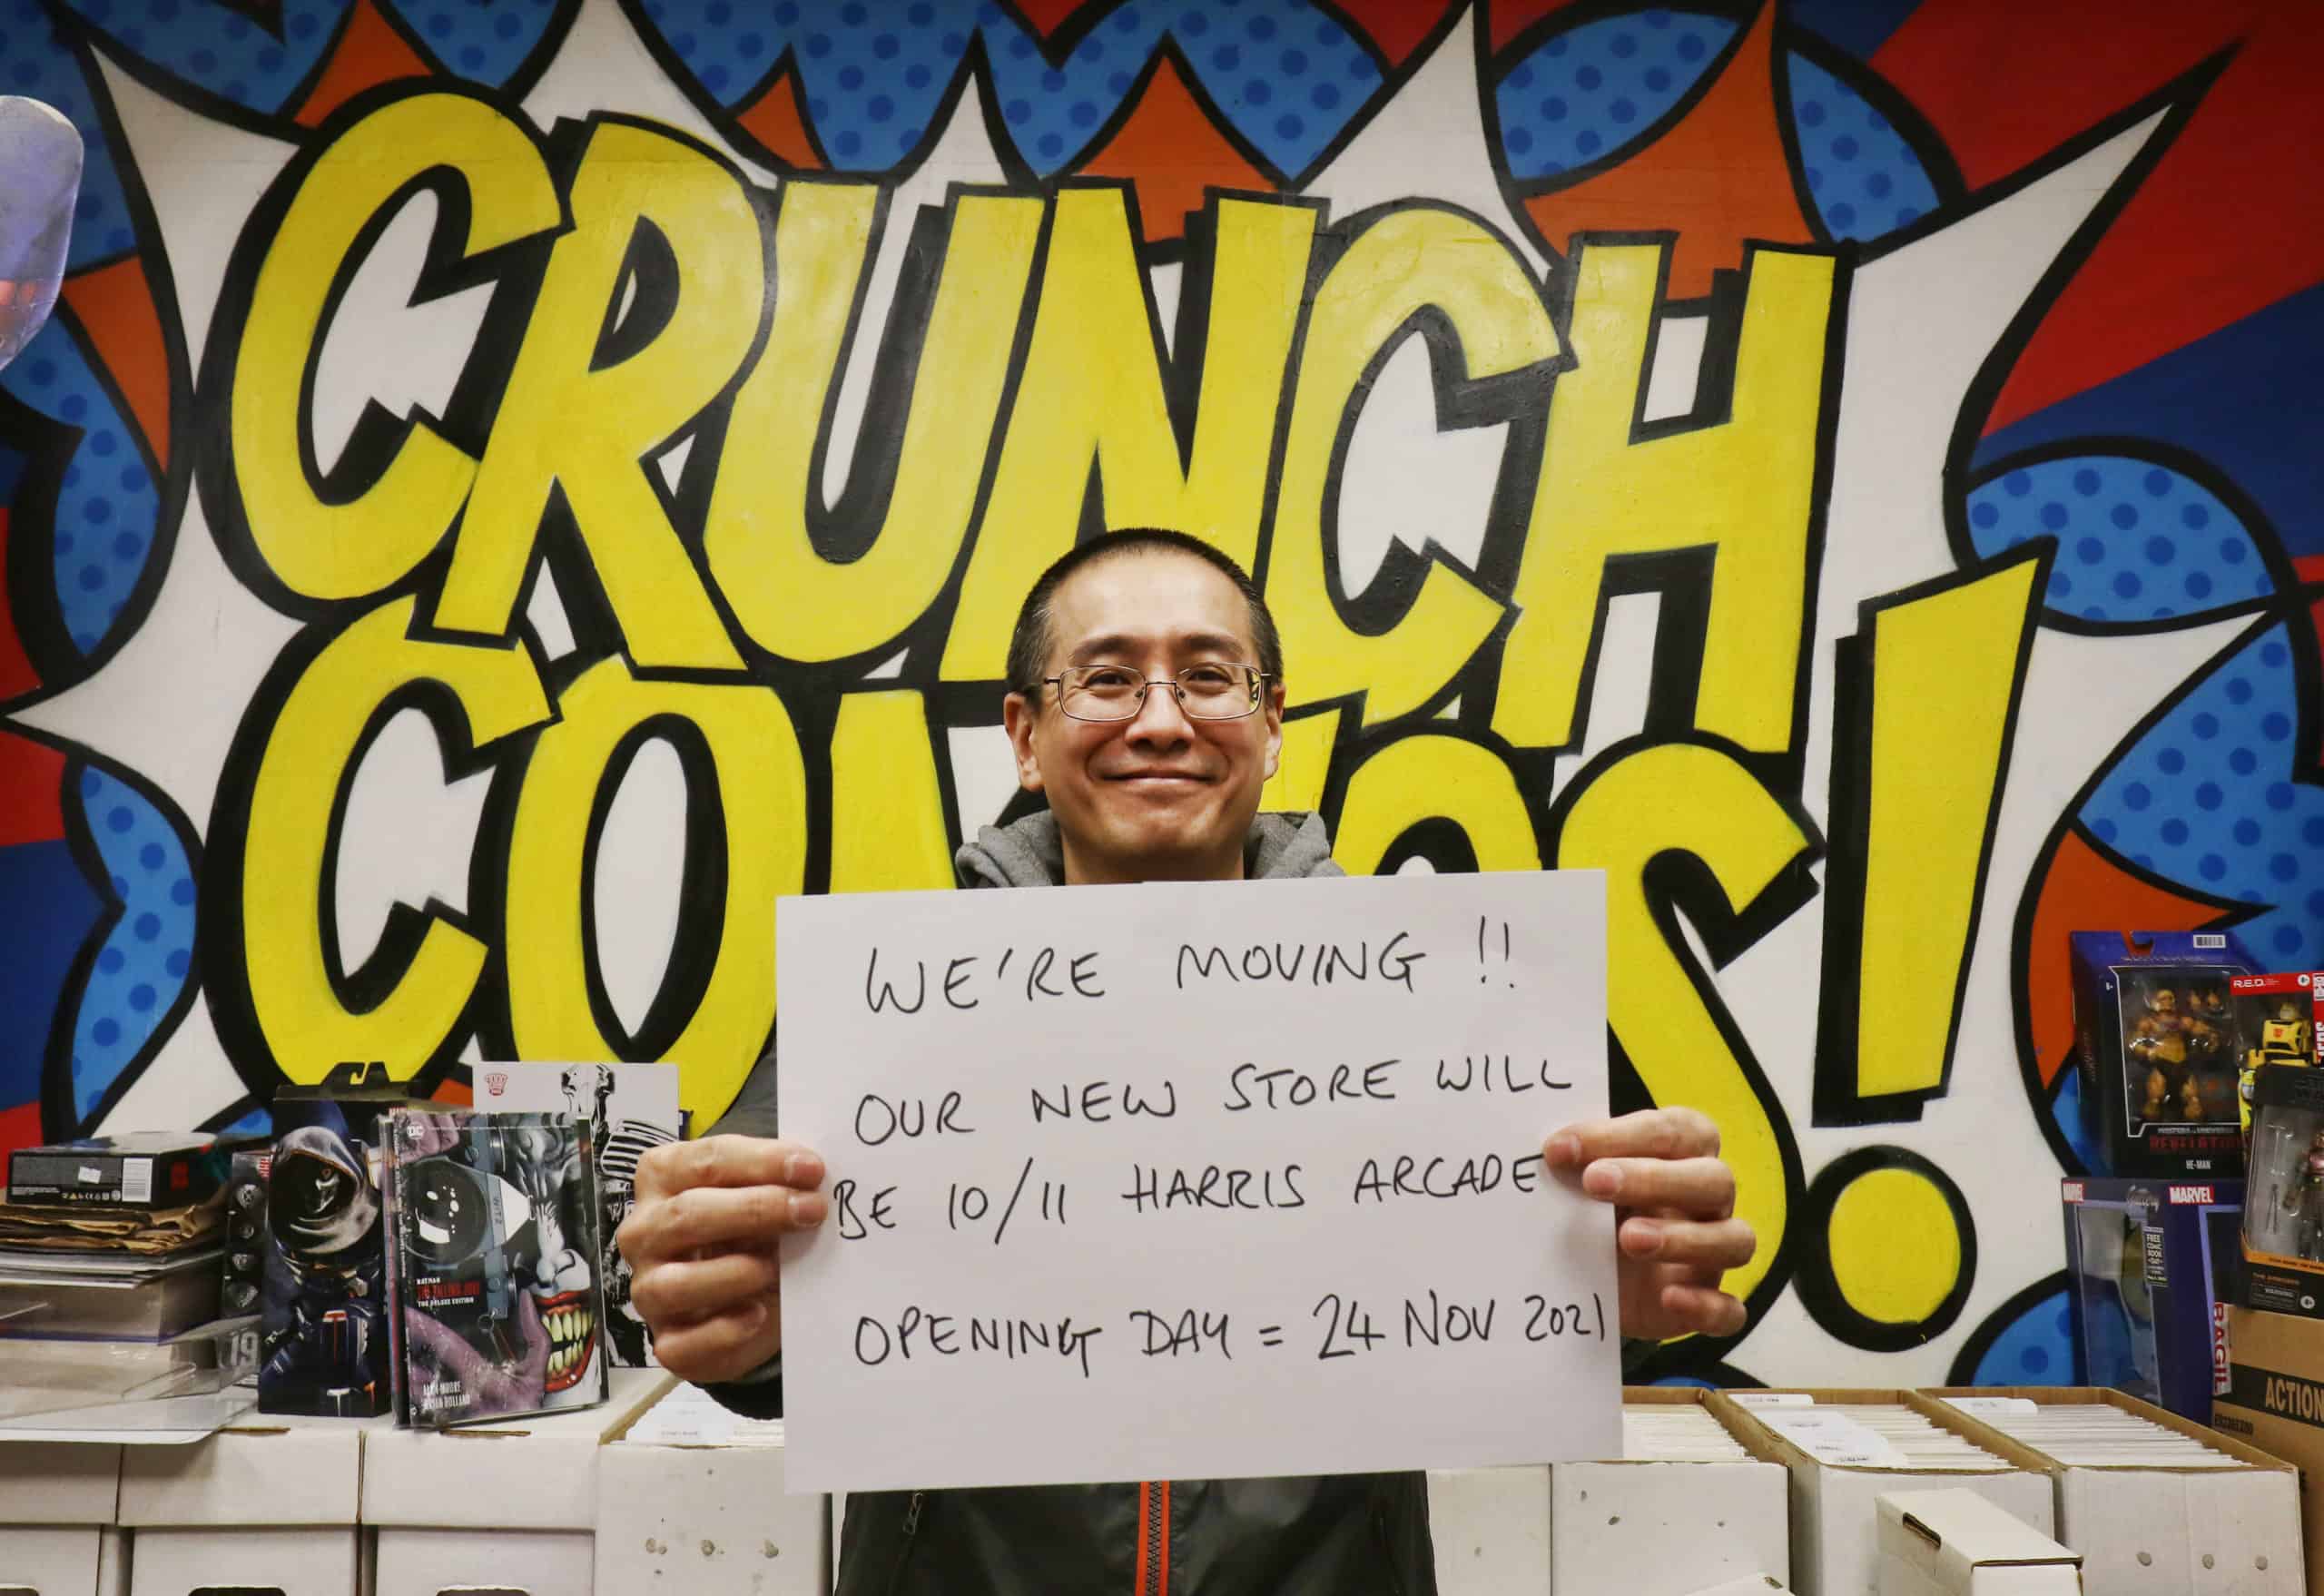 CRUNCH
CO
S!
WE'RE MOVING !!
OUR NEW STORE WILL
BE 10/11 HARRIS ARCADE
OPENING DAY = 24 NOV 2021
DC
BATMAN
THE KILLING JOKE
THE DELUXE EDITION
ALAN MOORE
BRIAN BOLLAND
19
R.E.D.
REVELATION
HE-MAN
MARVEL
MARVEL
FREE
COMIC
BOOK
DAY
ACTION